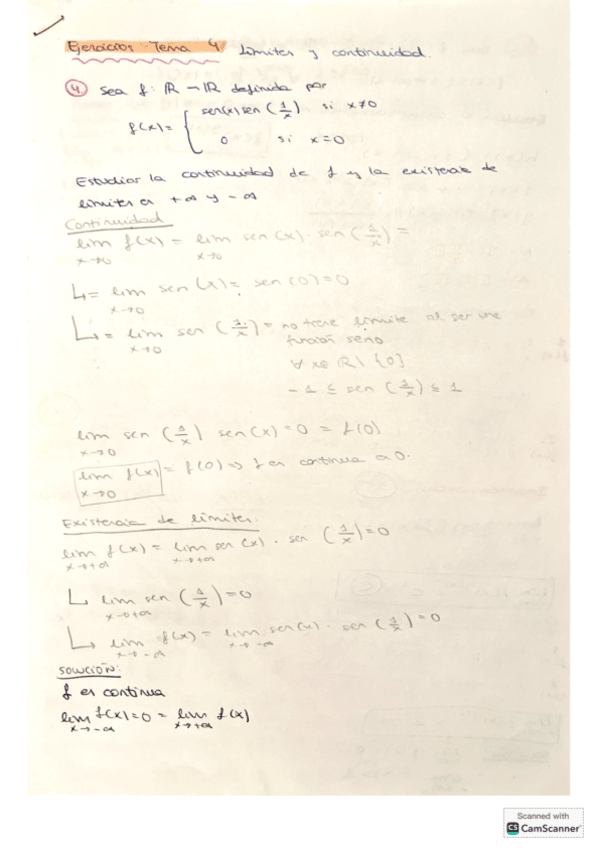 Ejercicios Tema 4 Límites y continuidad.
4 Sea f: ℝ → ℝ definida por
f(x) = { sen(x) sen (1/x) si x≠0
0 si x=0
Estudiar la continuidad de f y la existencia de
límites en +∞ y -∞
Continuidad
lim x→0 f(x) = lim x→0 sen (x) · sen (1/x) =
↳ = lim x→0 sen (x) = sen (0) = 0
↳ = lim x→0 sen (1/x) = no tiene límite al ser una
función seno
∀ x∈ ℝ \ {0}
-1 ≤ sen (1/x) ≤ 1
lim x→0 sen (1/x) sen (x) = 0 = f(0)
lim x→0 f(x) = f(0) ⇒ f es continua a 0.
Existencia de límites.
lim x→+∞ f(x) = lim x→+∞ sen (x) · sen (1/x) = 0
↳ lim x→+∞ sen (1/x) = 0
↳ lim x→-∞ f(x) = lim x→-∞ sen(x) · sen (1/x) = 0
SOLUCIÓN:
f es continua
lim x→-∞ f(x) = 0 = lim x→+∞ f(x)
Scanned with
CS CamScanner